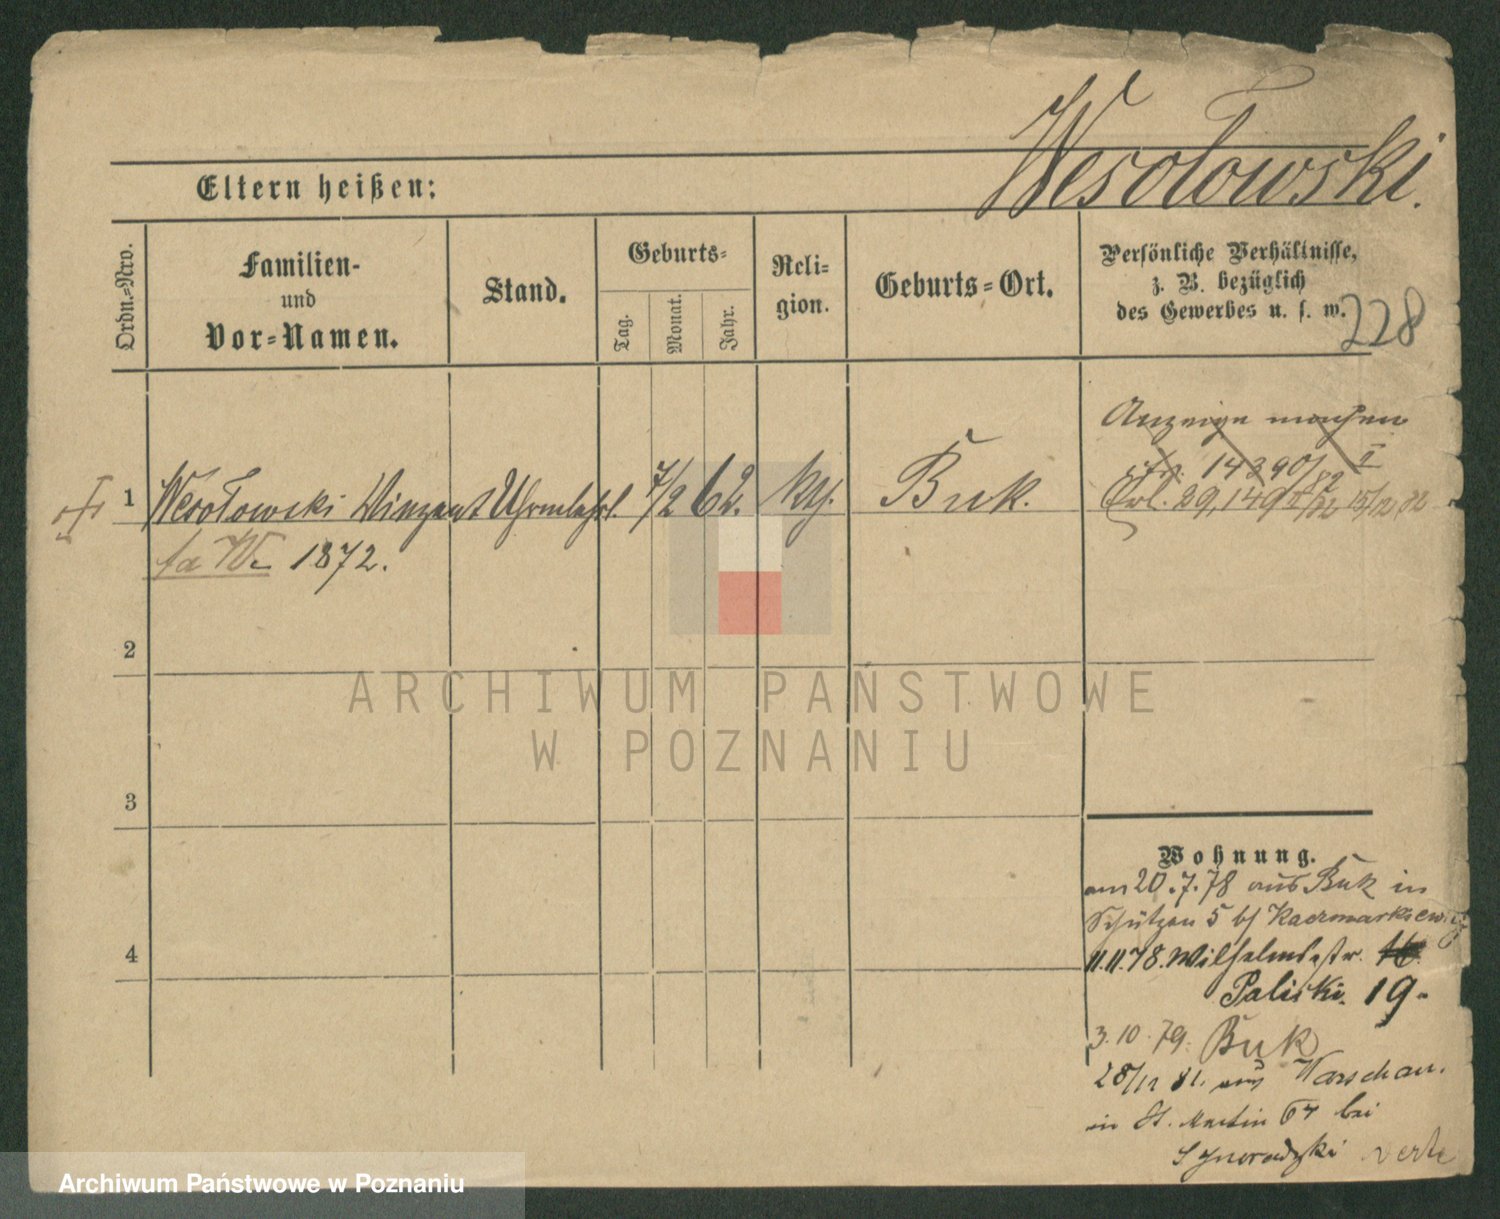 Wesołowski.
Eltern heißen:
Ordn.-Nro.
Familien-
und
Vor-Namen.
Stand.
Geburts-
Tag.
Monat.
Jahr.
Reli-
gion.
Geburts-Ort.
Persönliche Verhältnisse,
z. B. bezüglich
des Gewerbes u. s. w.
228
Anzeige machen
14390/82 I
1 Wesołowski Vinzent Uhrmlehrl. 7/2 62. kth. Buk. Erl. 29,149 15/12 82
1872.
2
3
4
ARCHIWUM PAŃSTWOWE
W POZNANIU
Wohnung.
am 20.7.78 aus Buk in
Schützen 5 b/ Kaczmarkiewicz
11.11.78. Wilhelmstr. 16
Paliski. 19.
3.10.79. Buk
28/11 81. aus Warschau.
in St. Martin 67 bei
verte
Archiwum Państwowe w Poznaniu